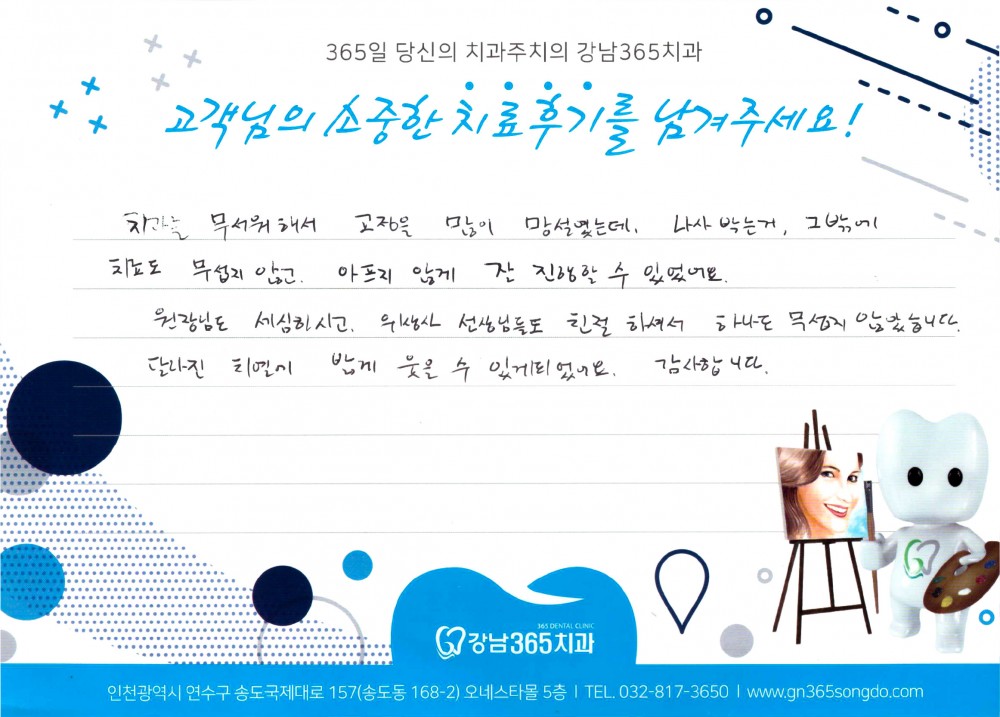 365일 당신의 치과주치의 강남365치과
고객님의 소중한 치료후기를 남겨주세요!
치과를 무서워해서 교정을 많이 망설였는데, 나사 박는거, 그밖에
치료도 무섭지 않고, 아프지 않게 잘 진행할 수 있었어요.
원장님도 세심하시고, 위생사 선생님들도 친절 하셔서 하나도 무섭지 않았습니다.
달라진 치열에 밝게 웃을 수 있게되었어요. 감사합니다.
365 DENTAL CLINIC
강남365치과
인천광역시 연수구 송도국제대로 157(송도동 168-2) 오네스타몰 5층 | TEL. 032-817-3650 | www.gn365songdo.com